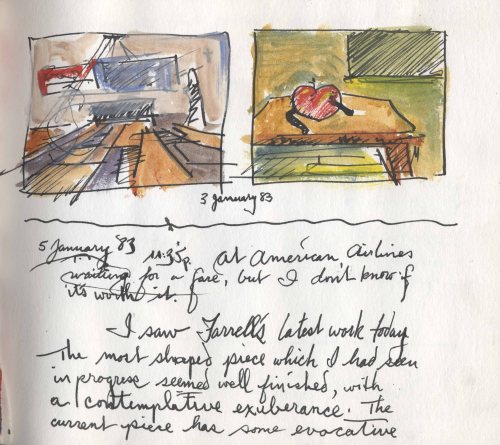 3 January 83
5 January 83 11:35p. at American Airlines
waiting for a fare, but I don't know if
it's worth it.
I saw Farrell's latest work today
The most shaped piece which I had seen
in progress seemed well finished, with
a contemplative exuberance. The
current piece has some evocative